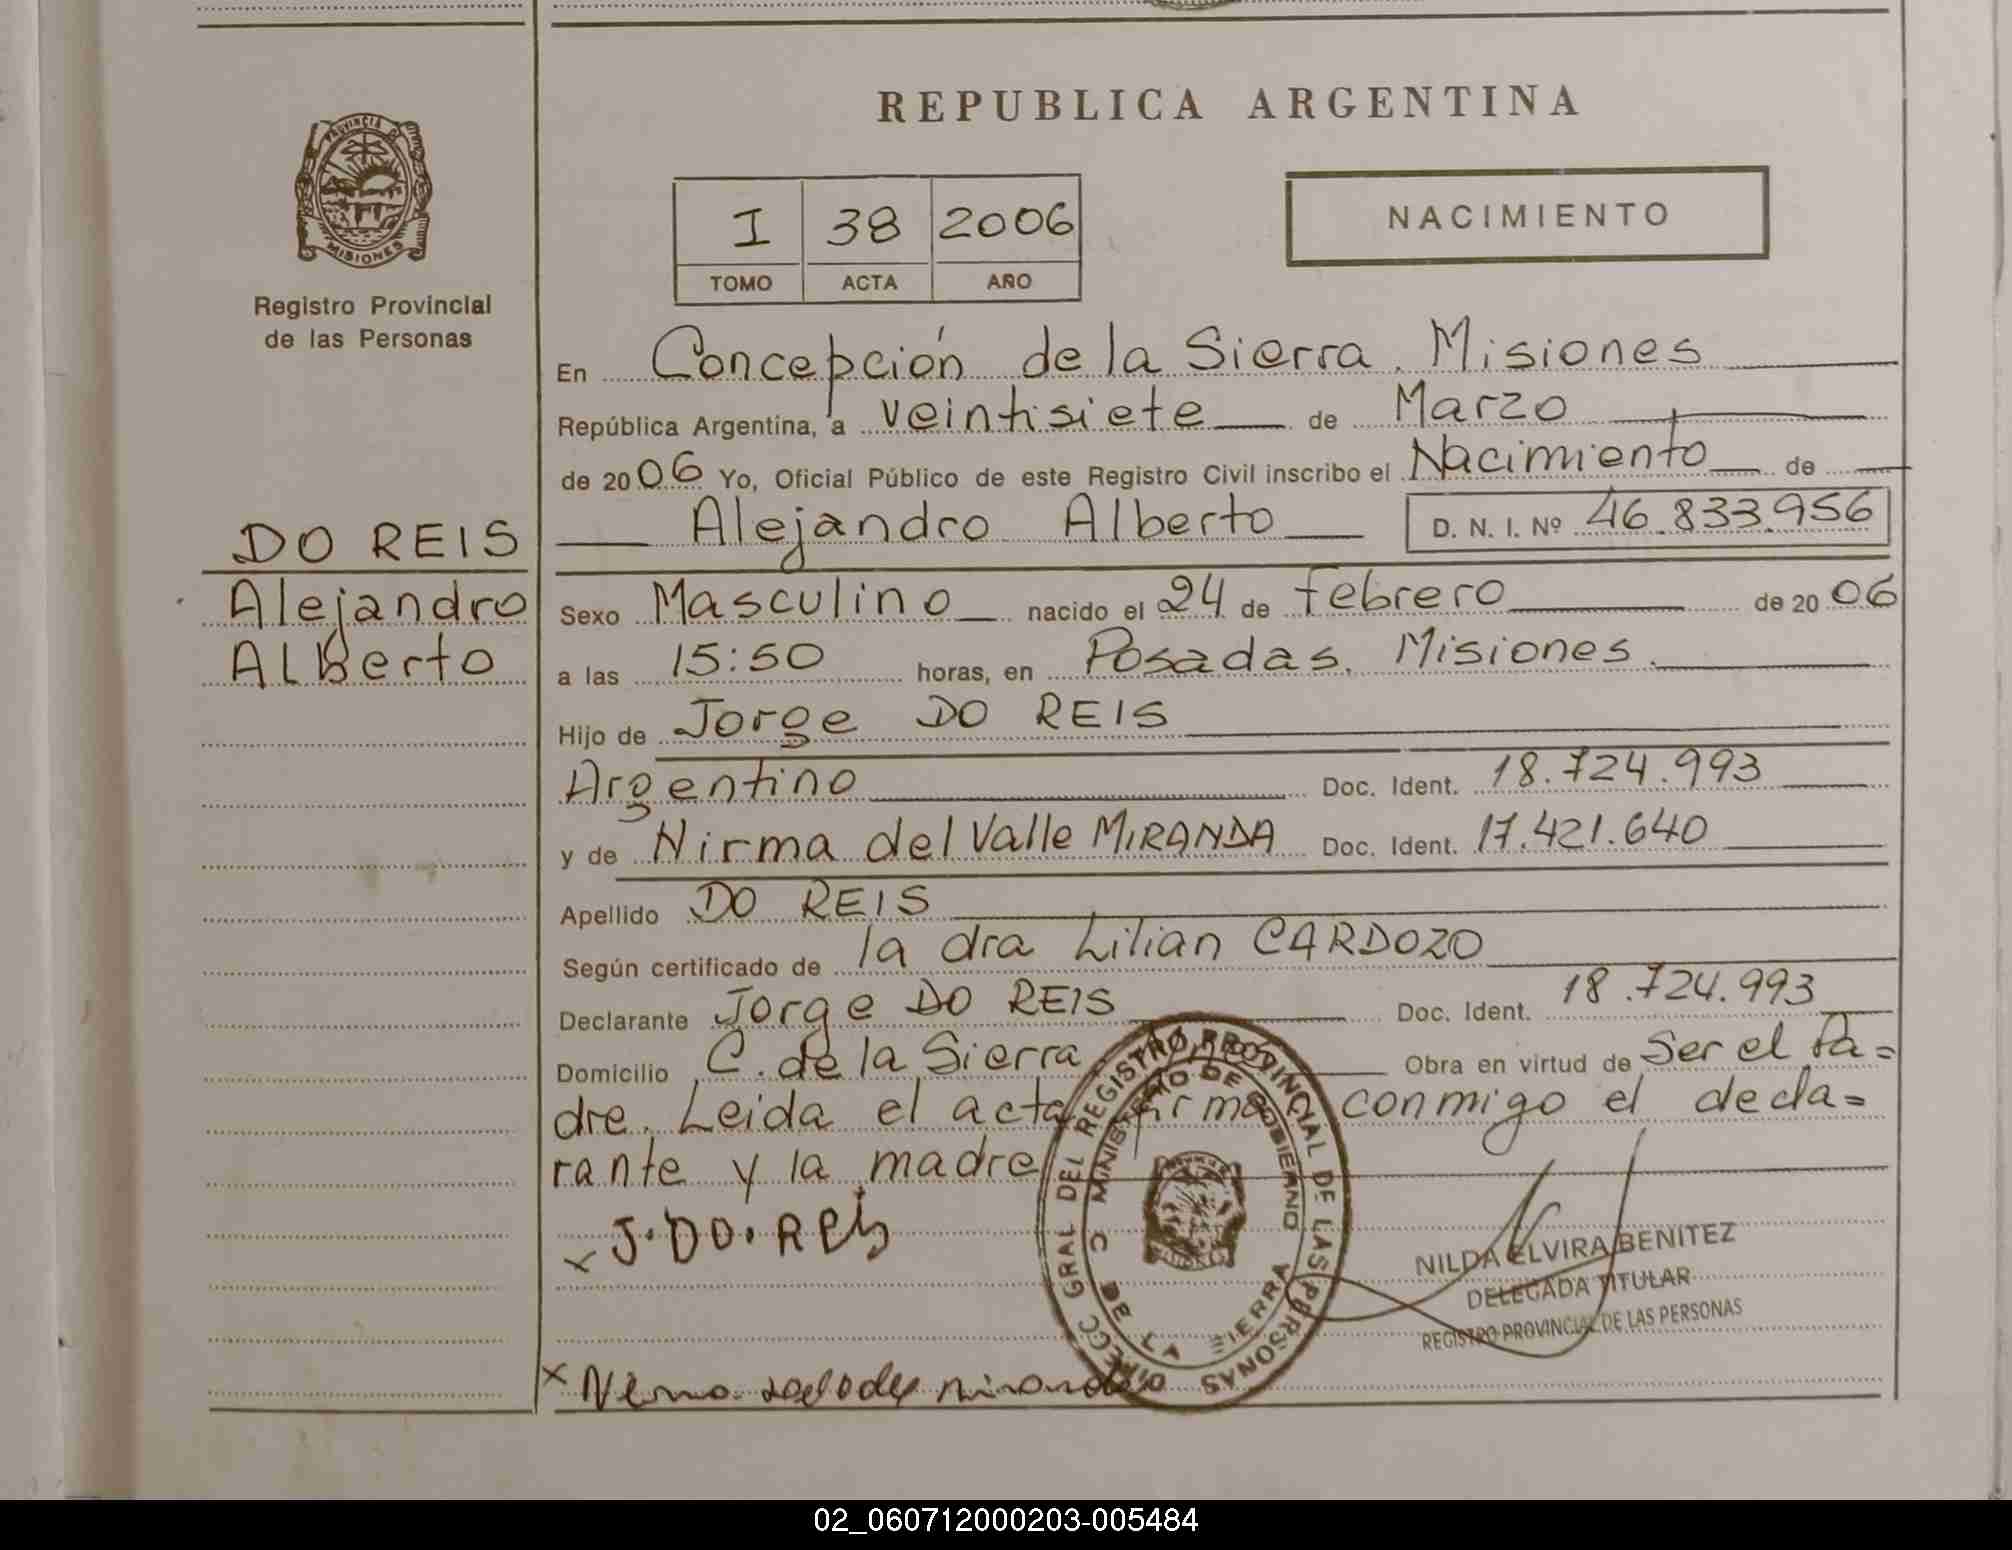 REPUBLICA ARGENTINA
PROVINCIA D
MISIONES
Registro Provincial
de las Personas
I 38 2006
TOMO ACTA AÑO
NACIMIENTO
En Concepción de la Sierra. Misiones
República Argentina, a veintisiete de Marzo
de 2006 Yo, Oficial Público de este Registro Civil inscribo el Nacimiento de
Alejandro Alberto D. N. I. Nº 46.833.956
DO REIS
Alejandro
ALBerto
Sexo Masculino nacido el 24 de Febrero de 2006
a las 15:50 horas, en Posadas. Misiones.
Hijo de Jorge DO REIS
Argentino Doc. Ident. 18.724.993
y de Nirma del Valle MIRANDA Doc. Ident. 17.421.640
Apellido DO REIS
Según certificado de la dra Lilian CARDOZO
Declarante Jorge DO REIS Doc. Ident. 18.724.993
Domicilio C. de la Sierra Obra en virtud de Ser el Pa=
dre. Leida el acta firma conmigo el decla=
rante y la madre
x J. DO. REis
DIRECC GRAL DEL REGISTRO PROVINCIAL DE LAS PERSONAS
MINISTERIO DE GOBIERNO
C DE LA SIERRA
NILDA ELVIRA BENITEZ
DELEGADA TITULAR
REGISTRO PROVINCIAL DE LAS PERSONAS
x
02_060712000203-005484